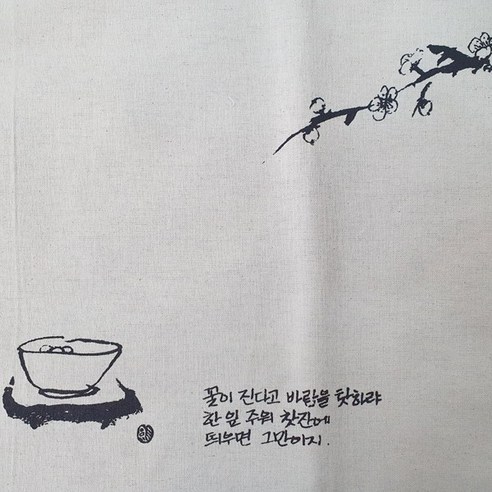 꽃이 진다고 바람을 탓하랴
한 잎 주워 찻잔에
띄우면 그만이지.